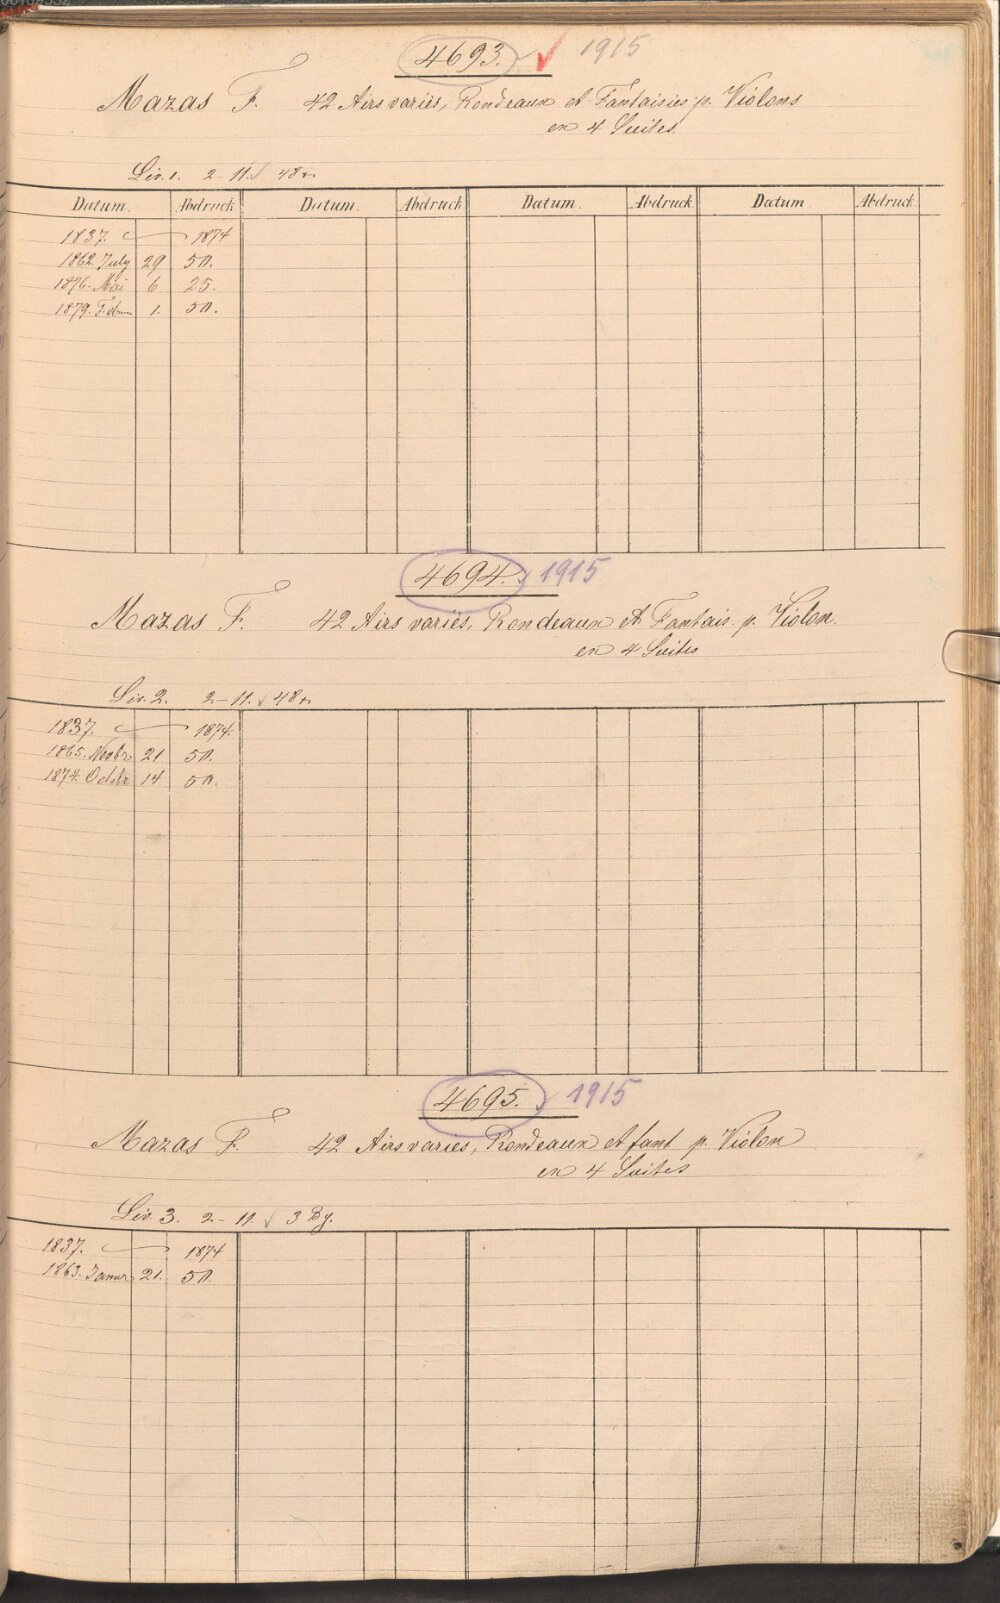 4693. 1915
Mazas F. 42 Airs variés, Rondeaux et Fantaisies p. Violons
en 4 Suites.
Liv. 1. 2-11. 48
Datum. Abdruck Datum. Abdruck Datum. Abdruck Datum Abdruck.
1837. 1874
1862. July 29 50.
1876. Mai 6 25.
1879. Febru 1. 50.
4694. 1915
Mazas F. 42 Airs variés, Rondeaux et Fantais. p. Violon.
en 4 Suites
Liv. 2. 2-11. 48
1837. 1874.
1865. Novbr 21 50.
1874. Octobr 14 50.
4695. 1915
Mazas F. 42 Airs variés, Rondeaux et fant p. Violon
en 4 Suites
Liv. 3. 2-11. 3 Bg.
1837. 1874
1863. Januar 21. 50.